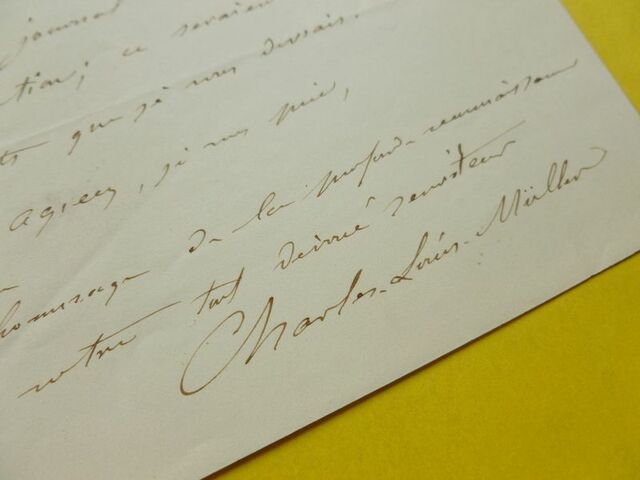 journal
; ce seraient
que je vous devrais.
agréez, je vous prie,
hommage de la profonde reconnaissance
votre tout dévoué serviteur
Charles-Louis-Müller